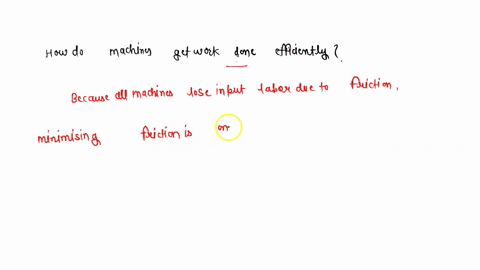 How do machines get work done efficiently?
Because all machines lose input labor due to friction,
minimising friction is on